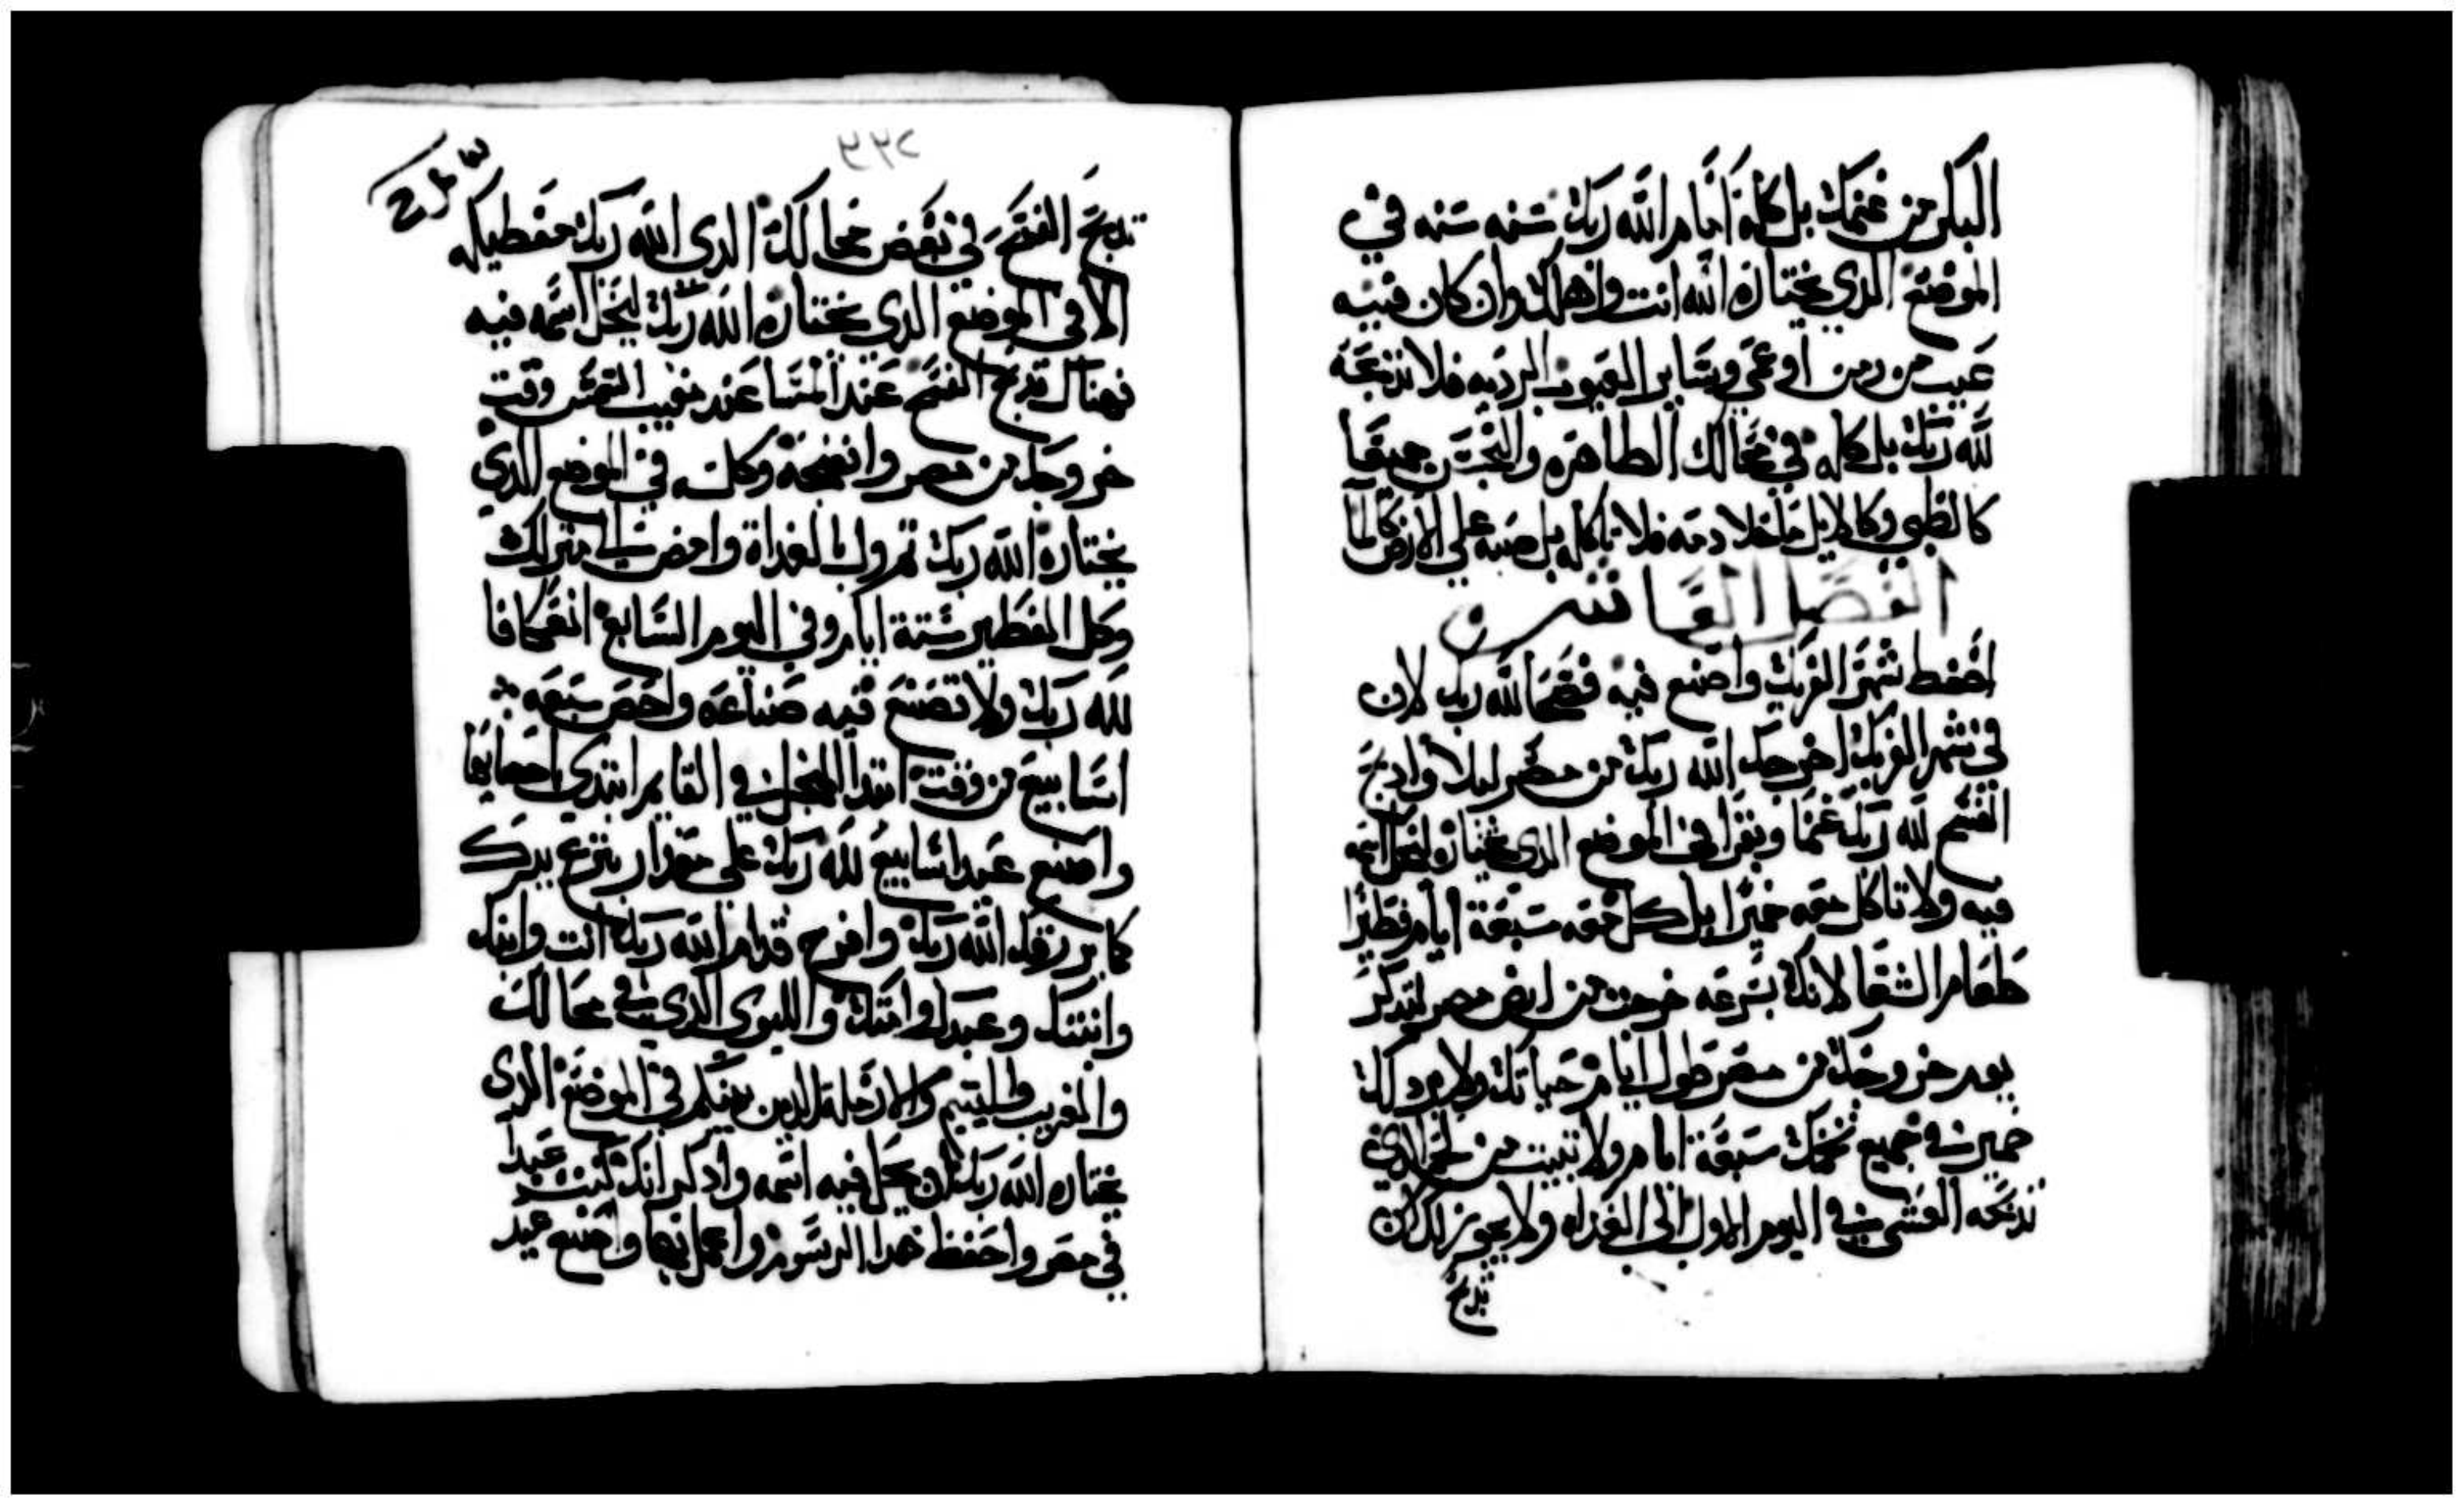 البكر من غنمك بل كله امام الله ربك سنه سنه في
الموضع الذي يختاره الله انت واهلك وان كان فيه
عيب من زمن او عمي وساير العيوب الرديه فلا تذبحه
لله ربك بل كله في محالك الطاهره والنجس جميعا
كالظبي وكالايل ما خلا دمه فلا تاكله بل صبه علي الارض كالما
الفصل العاشر
احفظ شهر الفريك واصنع فيه فصحا لله ربك لان
في شهر الفريك اخرجك الله ربك من مصر ليلا واذبح
الفسح لله ربك غنما وبقرا في الموضع الذي يختاره ليحل اسمه
فيه ولا تاكل معه خميرا بل كل معه سبعة ايام فطيرا
طعام الشقا لانك بسرعه خرجت من ارض مصر لتدكر
يوم خروجك من مصر طول ايام حياتك ولا يرا لك
خمير في جميع تخمك سبعة ايام ولا تبيت من لحم الذي
تذبحه العشي في اليوم الاول الي الغداه ولا يجوز لك ان
تذبح
٢٢٧
تذبح الفسح في بعض محالك الدي الله ربك معطيكه
الا في الموضع الدي يختاره الله ربك ليحل اسمه فيه
فهناك تدبح الفسح عند المسا عند مغيب الشمس وقت
خروجك من مصر وانضجه وكله في الموضع الدي
يختاره الله ربك ثم ول بالغداة وامض الي منزلك
وكل الفطير ستة ايام وفي اليوم السابع اعتكافا
لله ربك ولا تصنع فيه صناعه واحص سبعه
اسابيع من وقت ابتدا المنجل في القايم ابتدي احصايها
واصنع عيد اسابيع لله ربك علي مقدار تبرع يدك
كما يرزقك الله ربك وافرح قدام الله ربك انت وابنك
وابنتك وعبدك وامتك والليوي الذي في محالك
والغريب واليتيم والارملة الدين بينكم في الموضع الدي
يختاره الله ربك ان يحل فيه اسمه وادكر انك كنت عبدا
في مصر واحفظ هدا الرسوم واعمل بها واصنع عيد